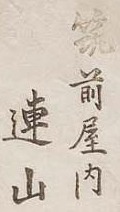 筑前屋内
連山